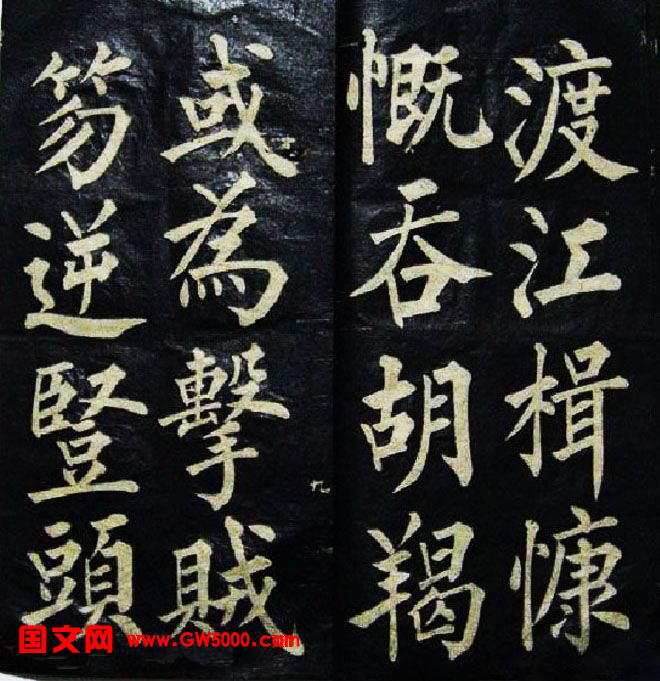 渡江楫慷
慨吞胡羯
或為擊賊
笏逆豎頭
九
国文网 www.GW5000.com